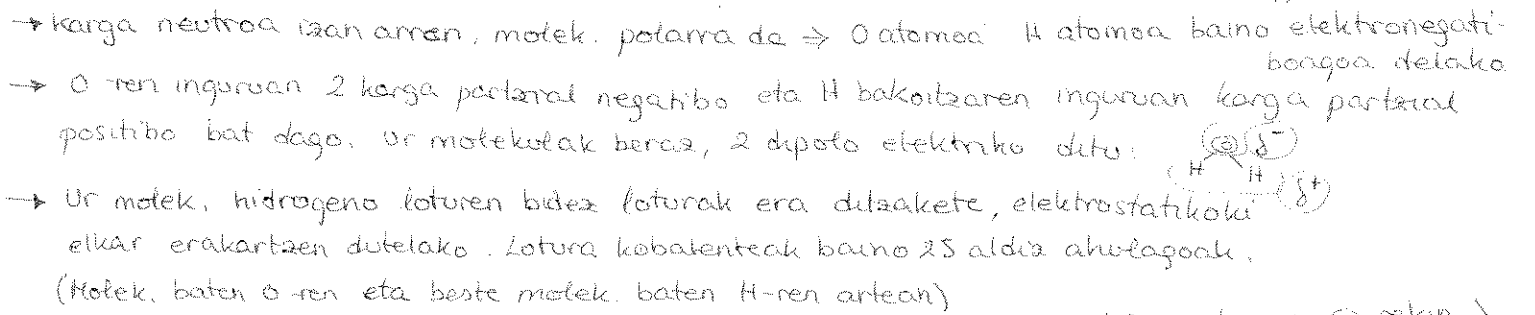 → Karga neutroa izan arren, molek. polarra da ⇒ O atomoa H atomoa baino elektronegati-
boagoa delako
→ O-ren inguruan 2 karga partzial negatibo eta H bakoitzaren inguruan karga partzial
positibo bat dago. Ur molekulak beraz, 2 dipolo elektriko ditu:
O δ⁻
H H δ⁺
→ Ur molek. hidrogeno loturen bidez loturak era ditzakete, elektrostatikoki
elkar erakartzen dutelako. Lotura kobalenteak baino 25 aldiz ahulagoak.
(Molek. baten O-ren eta beste molek. baten H-ren artean)